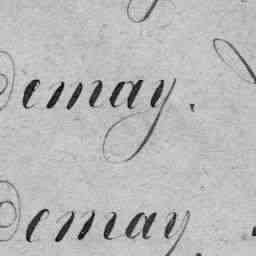 Demay.
Demay.